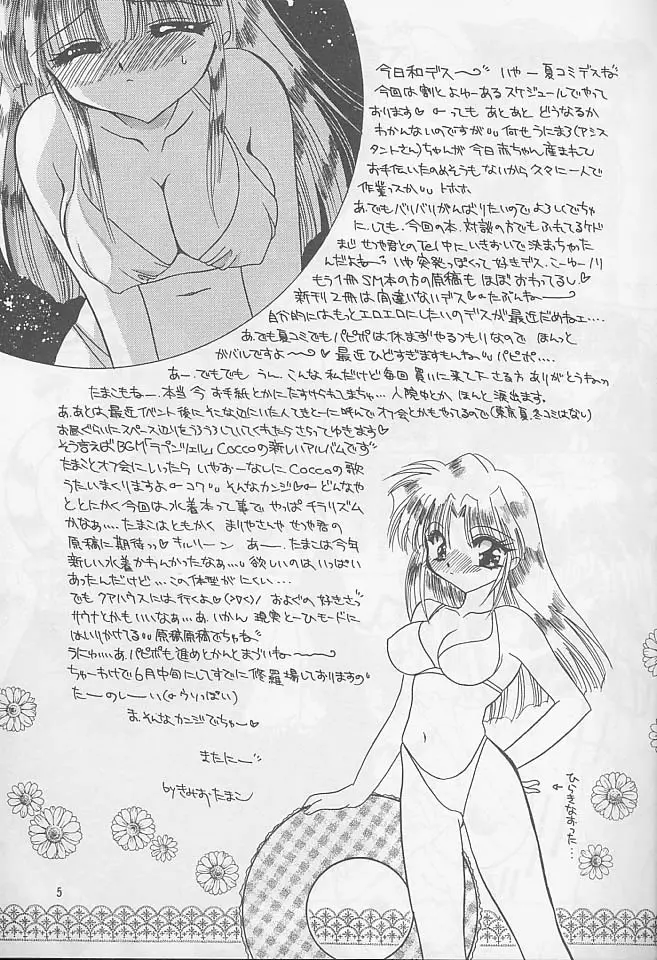 今日和デス〜 いやー夏コミデスね
今回は割とよゆーあるスケジュールでやって
おります♡ーっても あとあと どうなるか
わかんないのですが〃何せうにまろ(アシス
タントさん)ちゃんが今日赤ちゃん産まれて
お手伝いたのめそうもないから久々に一人で
作業っスか〃トホホ
あ、でもバリバリがんばりたいのでよろしくでちゅ
にしても、今回の本、対談の方でもふれてるケド
まじ せつや君とのTel中にいきおいで決まちゃった
んだよねー いや突発っぽくって好きデス、こーゆーノリ
もう1冊SM本の方の原稿も ほぼおわってるし♡
新刊2冊は間違いないデス♡たぶんねー
自分的にはもっとエロエロにしたいのデスが最近だめねェ....
あ、でも夏コミでもパピポは休まずやるつもりなので ほんっと
がバルですよ〜♡ 最近ひどすぎますもんね〃パピポ....
あー、でもでも うん、こんな私だけど毎回買いに来て下さる方 ありがとうねっ
たまこもねー、本当 今 お手紙とかにたすけられこまちゅ...
あ、あとは、最近イベント後にそこな辺にいた人てきとーに呼んでオフ会とかもやってるので(東京夏、冬コミはなし)
お昼ぐらいたスペース辺りをうろうろしていてくれたらさらってゆきます♡
そう言えばBGM「ラプンツェル」Coccoの新しいアルバムです
たまことオフ会にいったら いやおーなしにCoccoの歌
うたいまくりますよ ーコワ〃 そんなカンジ♡
ととにかく 今回は水着本って事で、やっぱ チラリズム
かなぁ.... たまこはともかく まりやさんや せつや君の
原稿に期待っ♡キルリーン あー、たまこは今年
新しい水着かわんかったなぁ.... 欲しいのはいっぱい
あったんだけど... この体型がにくい...
でも クアハウスには行くよ♡ およぐの好きさっ
サウナとかもいいなぁ... あ、いかん 現実とーひモードに
はいりかけてる〃原稿原稿でちゅね
うにゅ...あ、パピポも進めとかんとまづいねー
ちゅーわけで6月中旬にしてすでに修羅場しておりますの
たーのしーい
ま、そんなカンジでちゅー♡
またにー
by きみおたまこ
ひらきなおった...
5